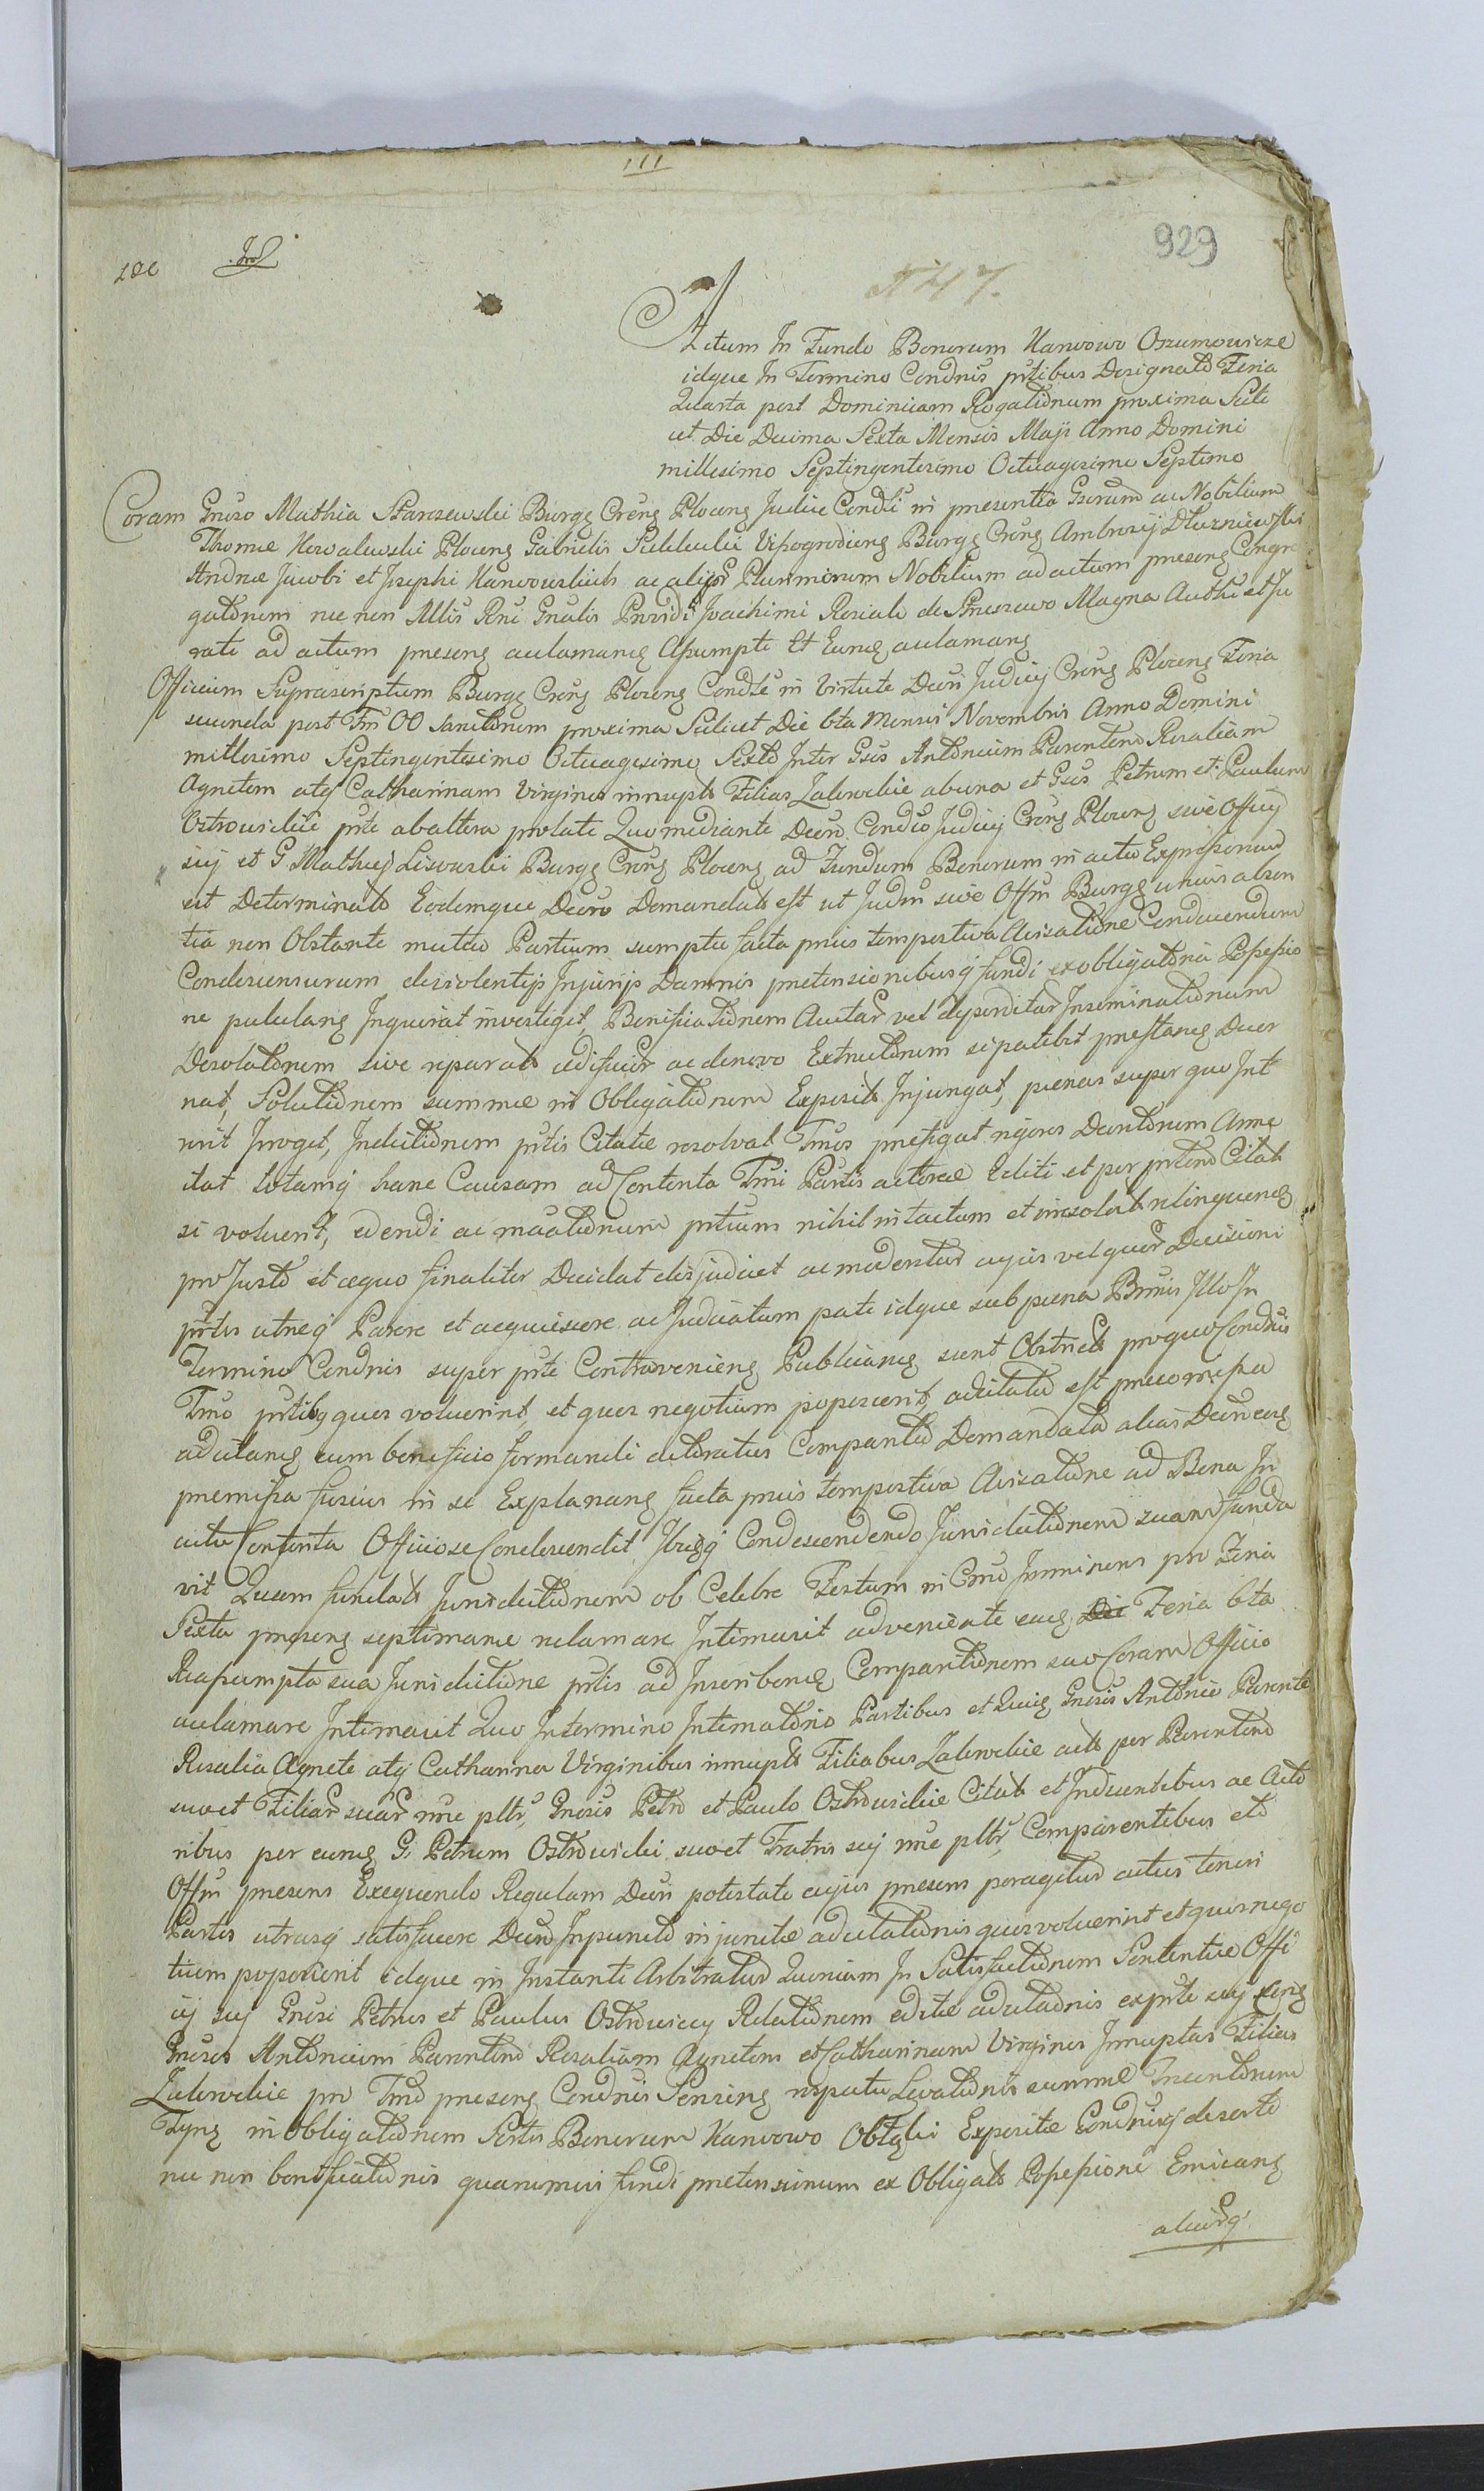 111
929
N 47.
Actum In Fundo Bonorum Kanwowo Oszumowicze
idque In Termino Condnis ptibus Designato Feria
Quarta post Dominicam Rogationum proxima Scili
cet Die Decima Sexta Mensis Maji Anno Domini
millesimo Septingentesimo Octuagesimo Septimo
Coram Gnroso Mathia Starczewski Burgg Crens Plocens Judice Condli in presentia Gserum ac Nobilium
Thomae Kowalewski Plocens Gabrielis Wyszogrodiens Burgg Crens Ambrosij Dłuzniewski
Andreae Jacobi et Josephi Kanwowskich ac alijor Plurimorum Nobilium ad actum presens Congre
gatorum nec non Mlis Rni Gnalis Providi Joachimi Rosiak de Magna Authi et Ju
rati ad actum presens aclamans Assumpti Et Eund aclamans
Officium Suprascriptum Burgg Crens Plocens Condle in Virtute Decri Judicij Crens Plocens Feria
secunda post Fm OO Sanctorum proxima Scilicet Die 6ta Mensis Novembris Anno Domini
millesimo Septingentesimo Octuagesimo Sexto Inter Gsos Antonium Parentem Rosaliam
Agnetem atq Catharinam Virgines innupts Filias Zalewskie ab una et Gsos Petrum et Paulum
Ostrowickie pte ab altera prolati Quo mediante Decro Condso Judicij Crens Plocens sive Officij
sui et G Mathiej Lisowski Burgg Crens Plocens ad Fundum Bonorum in actu Expressorum
est Determinato Eodemque Decro Demandato est ut Judm sive Offm Burgg unius absen
tia non Obstante mutuo Partium sumptu facta prius tempestiva Avisatione Conducendum
Condescensurum de violentijs Injurijs Damnis pretensionibusq fundi ex obligatoria Possessio
ne pululans Inquirat investiget, Bonificationem Auctar vel disperditar Inseminationum
Desolationem sive reparats aedificior ac denovo Extructorum si patebit prestans Decer
nat, Solutionem summae in Obligationem Exposits Injungat, paenas super quo Int
rerit Irroget, Inductionem ptis Citatae resolvat Tmos prefigat rigores Decretorum Anne
ctat totamq hanc Causam ad Contenta Tmi Partis actoreae Editi et per ptem Citats
si voluerit, edendi ac ptium nihil intactum et insolut relinquend
pro Justo et aequo finaliter Decidat disjudicet ac moderetur cujus vel quor Decisioni
ptes utreq Parere et acquiescere ac Judicatum pati idque sub paena Bnnis Illo In
Termino Condnis super pte Contraveniens Publicans sunt Obstricts pro quo Condnis
Tmo ptibq quos voluerint, et quos negotium poposcerit, adcitatio est
adcitand cum beneficio formandi Compartio Demandata alias Decro eod
premissa fusius in se Explanans facta prius tempestiva Avisatione ad Bona In
actu Contenta Officiose Condescendit Ibidq Condescendendo Jurisdictionem suam funda
vit Quam fundats Jurisdictionem ob Celebre Festum in Crno Imminens pro Feria
Sexta presens septimanae aclamare Intimavit adveniente eaq Die Feria 6ta
Reassumpta sua Jurisdictione ptis ad Inscribend Comparitionem suo Coram Officio
aclamare Intimavit Quo Intermino Intimatorio Partibus et Quid Gnrosis Antonio Parente
Rosalia Agnete atq Catharina Virginibus innupts Filiabus Zalewskie acts per Parentem
suo et Filiar suar nne pltr, Gnrosis Petro et Paulo Ostrowickie Citats et Inducentibus ac Acto
ribus per eund G. Petrum Ostrowicki suo et Fratris sui nne pltr, Comparentibus eto
Offm presens Exequendo Regulam Decri potestate cujus presens peragitur actus teneri
Partes utrasq satisfacere Decro Inpuncto injunctae adcitationis quos voluerint et quos nego
tium poposcerit idque in Instanti Arbitratur Quoniam In Satisfactionem Sententiae Offi
cij sui Gnrosi Petrus et Paulus Ostrowiccy Relationem editae adcitationis ex pte sui
Gnrosos Antonium Parentem Rosaliam Agnetem et Catharinam Virgines Innuptas Filias
Zalewskie pro Tmo presens Condnis respectu Levationis summae Trecentorum
Tynf in Obligationem Sortis Bonorum Kanwowo Obtli Expositae Condnisq deserto
nec non bonificationis quarumvis fundi pretensionum ex Obligats Possessione Emicans
aliarq